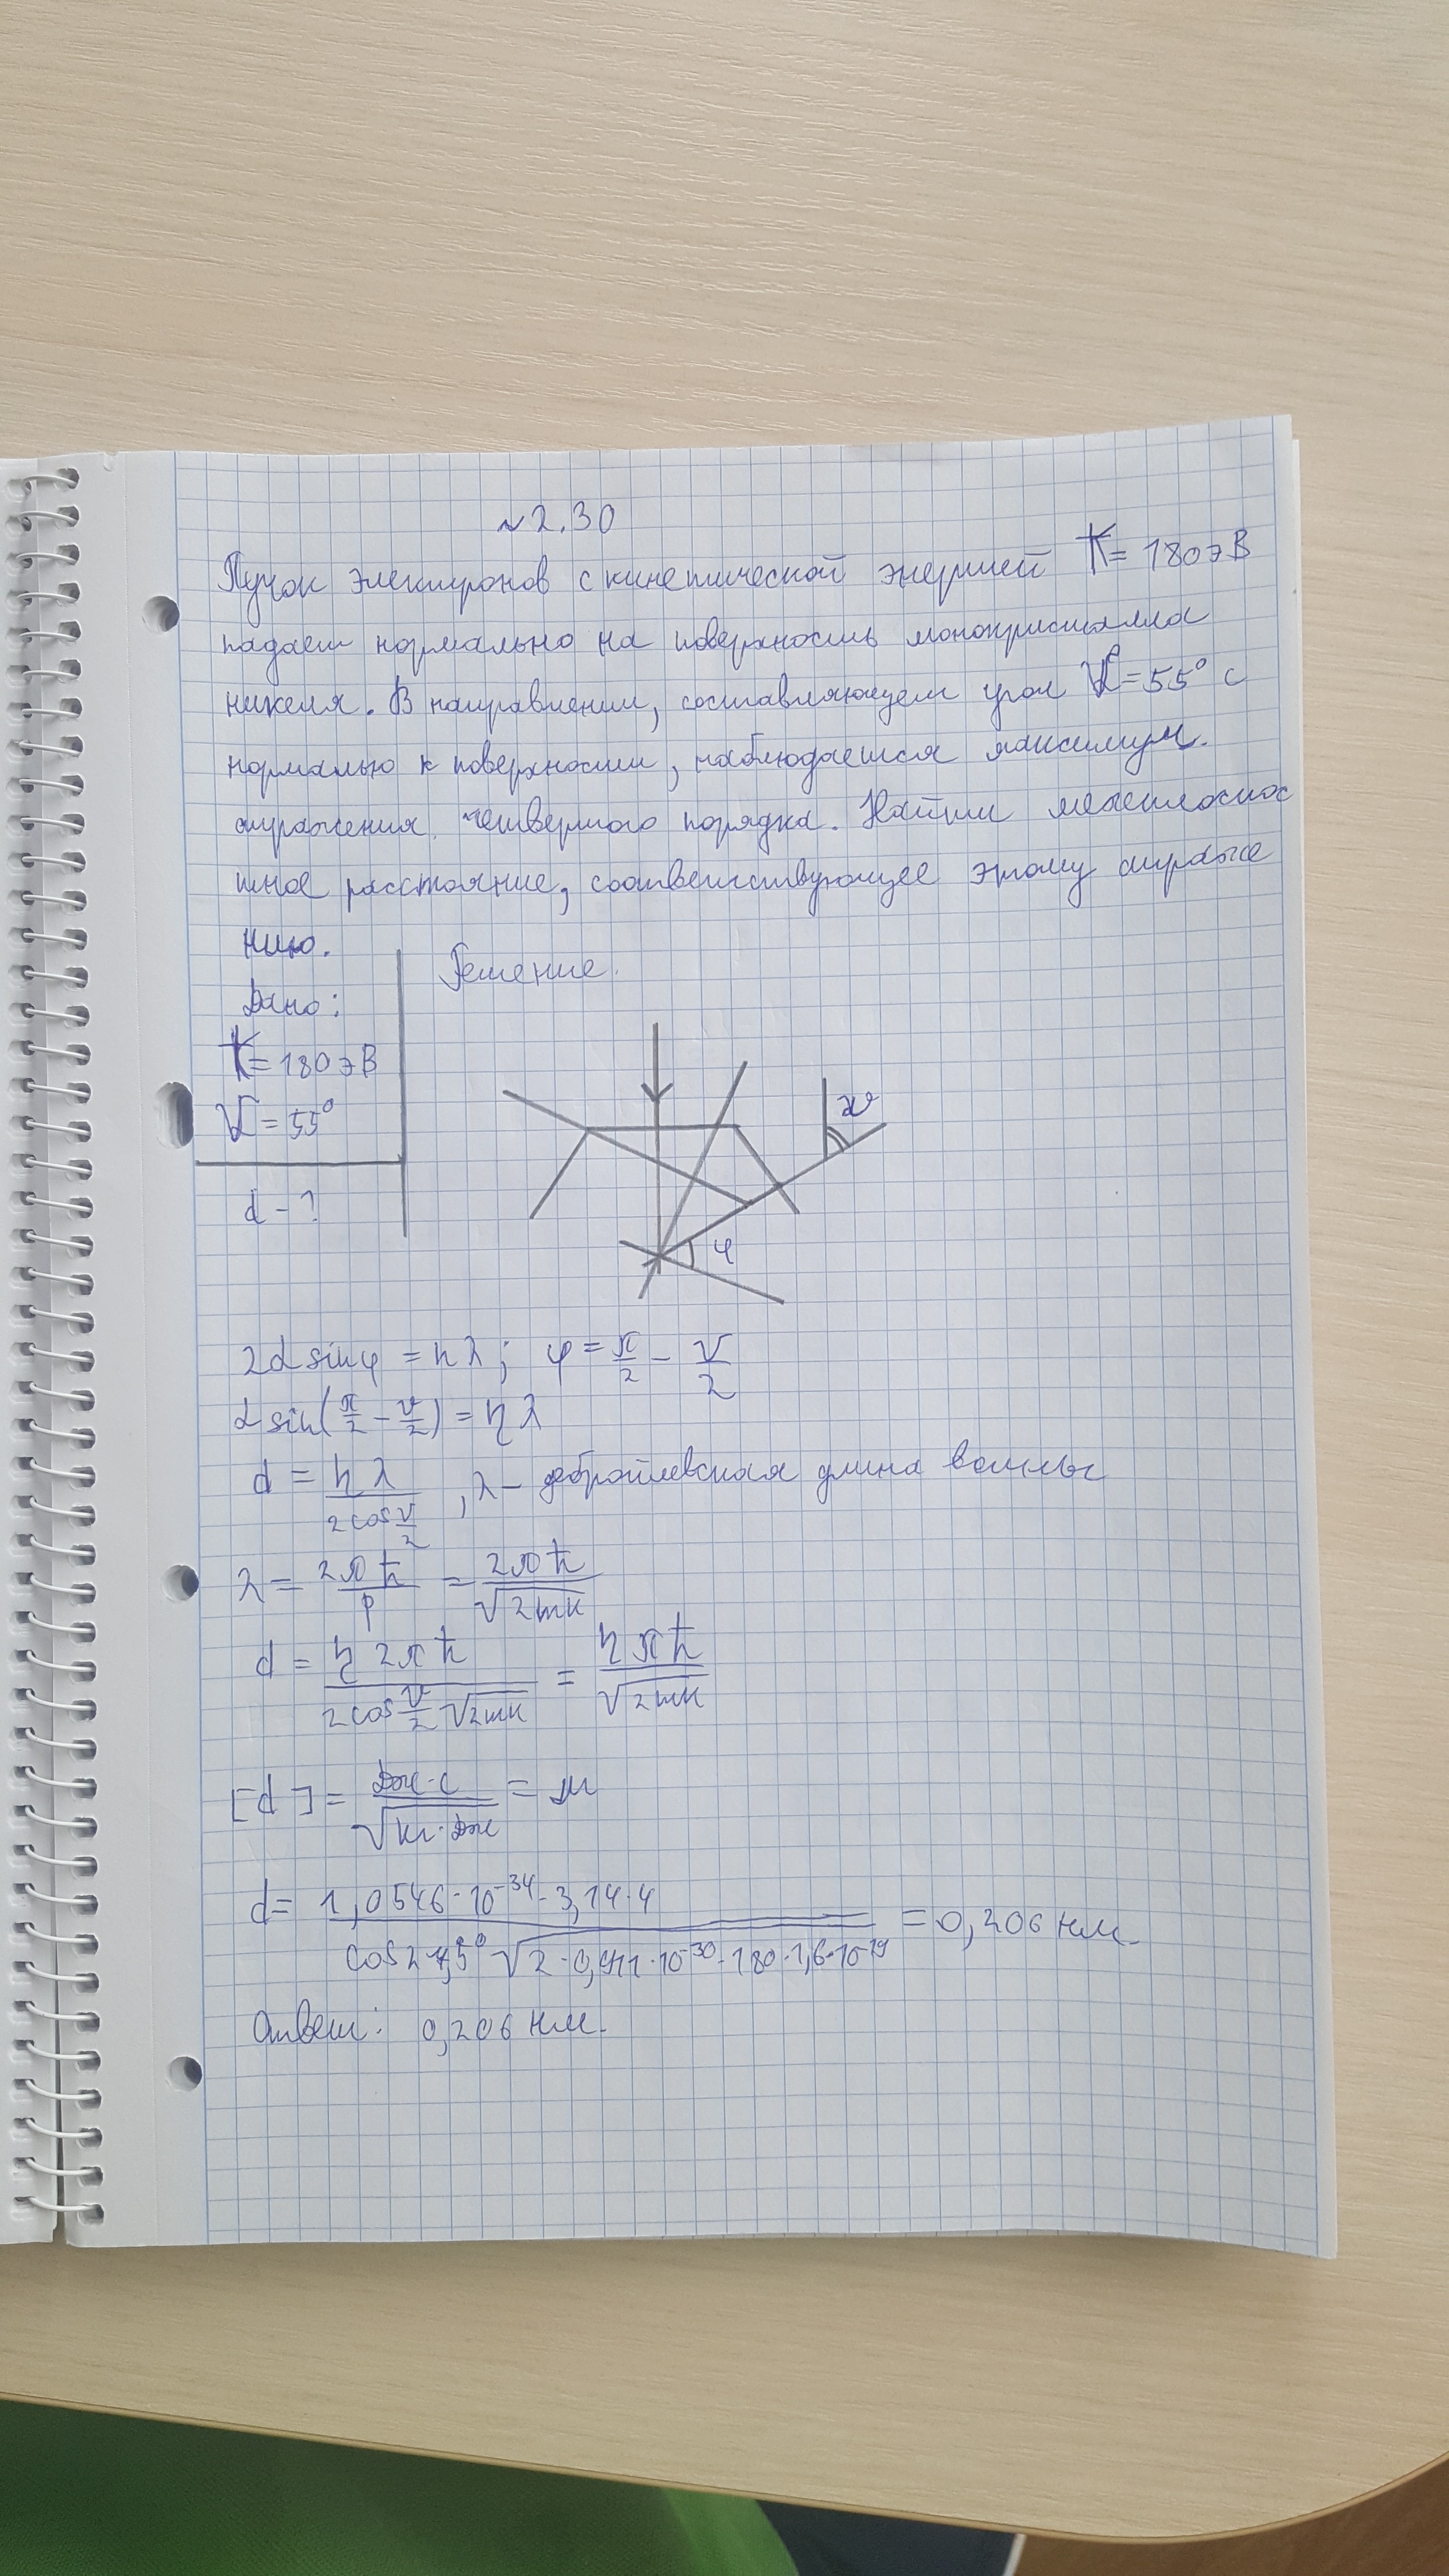 №2.30
Пучок электронов с кинетической энергией K = 180 эВ
падает нормально на поверхность монокристалла
никеля. В направлении, составляющем угол ϑ = 55° с
нормалью к поверхности, наблюдается максимум
отражения четвертого порядка. Найти межплоскос
тное расстояние, соответствующее этому отраже
нию.
Решение.
Дано:
K = 180 эВ
ϑ = 55°
d - ?
ϑ
φ
2d sin φ = nλ; φ = π/2 - ϑ/2
2 sin(π/2 - ϑ/2) = nλ
d = nλ/(2cos ϑ/2), λ - дебройлевская длина волны
λ = 2πħ/p = 2πħ/√(2mK)
d = n2πħ/(2cos ϑ/2 √(2mK)) = nπħ/√(2mK)
[d] = Дж·с/√(кг·Дж) = м
d = 1,0546·10⁻³⁴·3,14·4/(cos 27,5° √(2·0,911·10⁻³⁰·180·1,6·10⁻¹⁹)) = 0,206 нм.
Ответ: 0,206 нм.